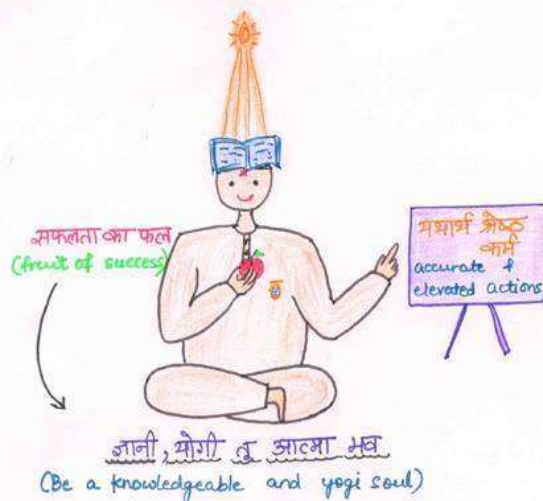 सफलता का फल
(fruit of success)
यथार्थ श्रेष्ठ
कर्म
accurate &
elevated actions
ज्ञानी, योगी तू आत्मा भव
(Be a knowledgeable and yogi soul)